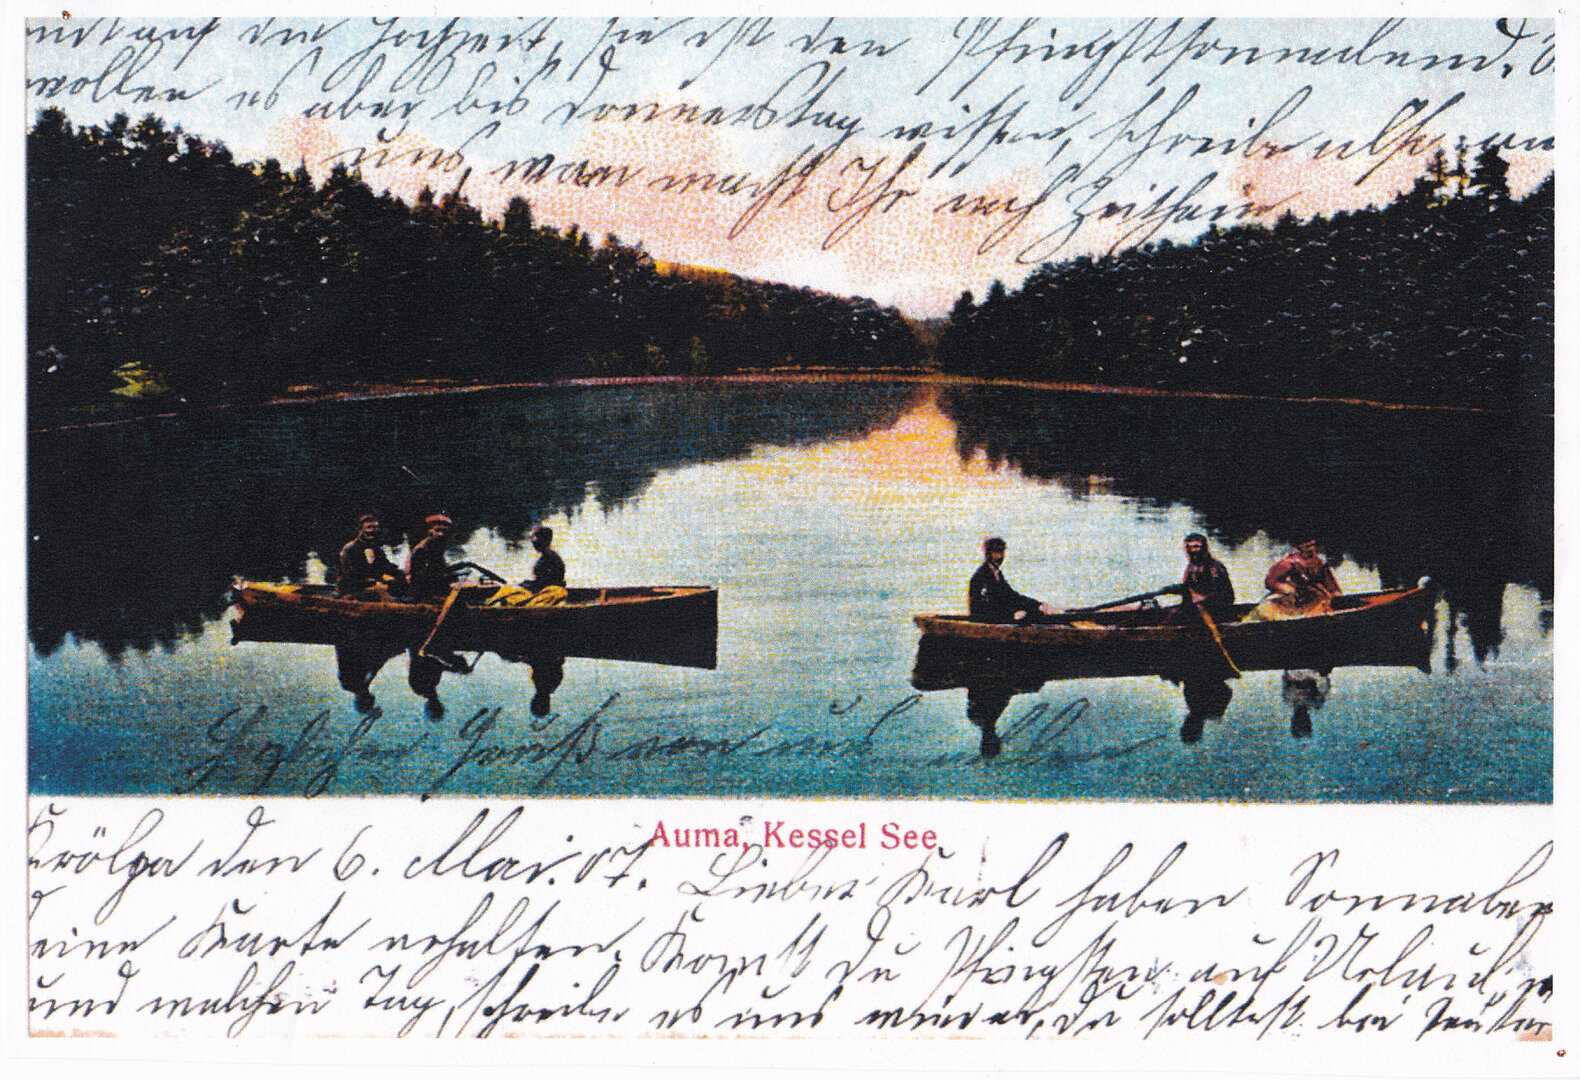 mit auf die Hochzeit, sie ist den Pfingstsonnabend.
wollen es aber bis Donnerstag wissen, schreibe also an
uns, wan macht Ihr nach Zeithain
Gruß von uns allen
Auma, Kessel See
Krölpa den 6. Mai. 07. Lieber Karl haben Sonnabend
eine Karte erhalten. Komst du Pfingsten auf Urlaub,
und welchen Tag, schreibe es uns wieder, du solltest bei